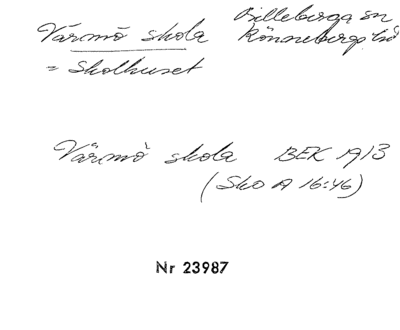 Värmö skola Billeberga sn
= Skolhuset Rönnebergs hd
Värmö skola BEK 1913
(Sko A 16:46)
Nr 23987